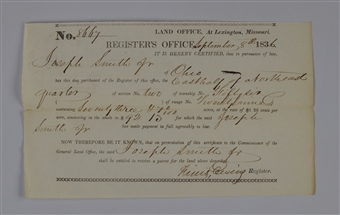 No. 8667
LAND OFFICE, At Lexington, Missouri
REGISTER'S OFFICE, September 8th 1836
IT IS HEREBY CERTIFIED, that in pursuance of law,
Joseph Smith Jr
of Ohio
has this day purchased of the Register of this office, the East half of northeast
quarter of section two of township No. fifty six
of range No. Twenty nine
containing Seventy three acres, at the rate of $1 25 cents per
acre, amounting in the whole to $ 92 for which the said Joseph
Smith Jr has made payment in full agreeably to law:
NOW THEREFORE BE IT KNOWN, that on presentation of this certificate to the Commissioner of the
General Land Office, the said Joseph Smith Jr
shall be entitled to receive a patent for the land above described.
Finis Ewing Register.